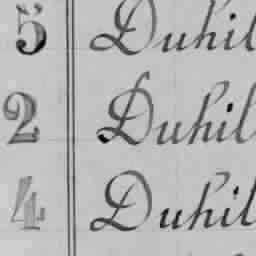 5 Duhil
2 Duhil
4 Duhil